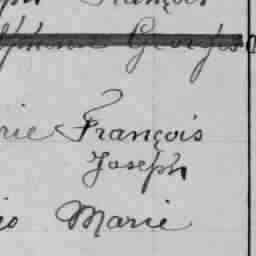 François
Georges
rie François
Joseph
Marie